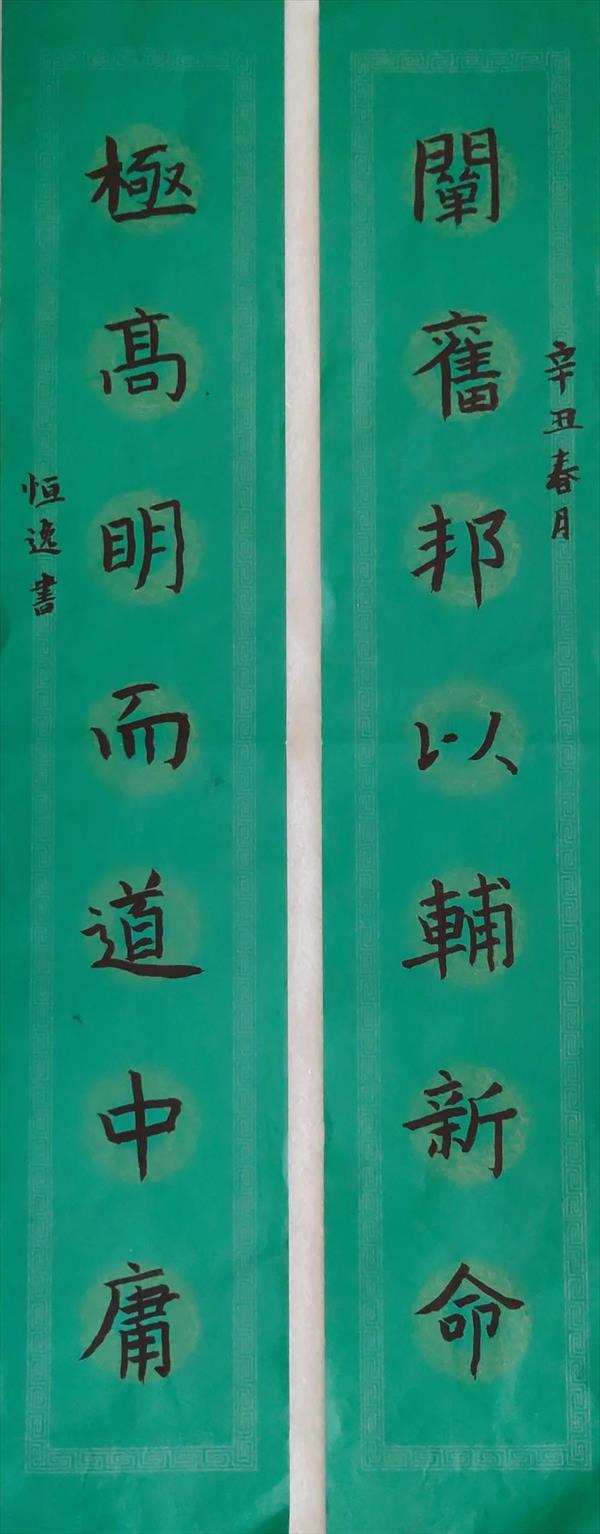 辛丑春月
闡舊邦以輔新命
極高明而道中庸
恒逸書